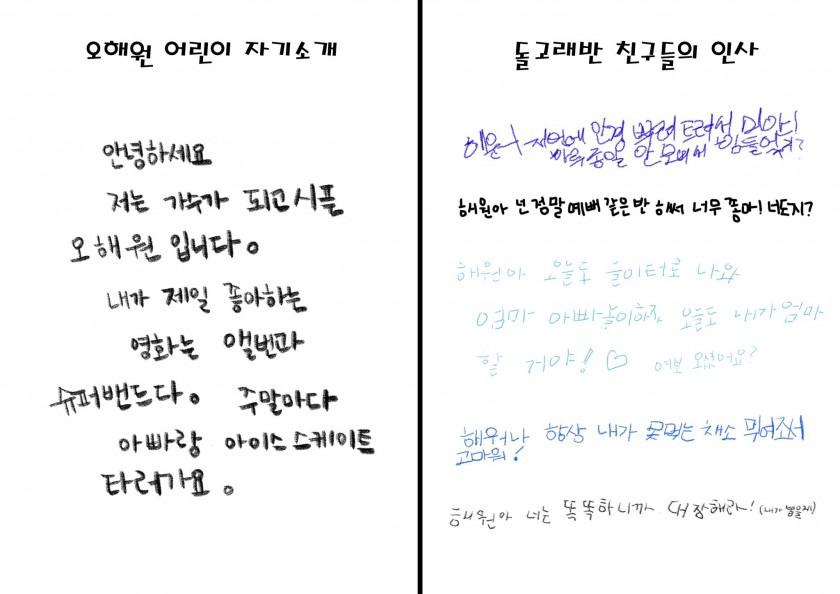 오해원 어린이 자기소개
안녕하세요
저는 가수가 되고시픔
오해원 입니다。
내가 제일 좋아하는
영화는 앨빈과
슈퍼밴드다。 주말마다
아빠랑 아이스 스케이트
타러가요。
돌고래반 친구들의 인사
저번에 안경 뿌려 트려서 미안!
하루종일 안 보여서 힘들었지?
해원아 넌 정말 예뻐 같은반 해써 너무 쫑아! 너도지?
해원아 오늘도 놀이터로 나와
엄마 아빠놀이하자 오늘도 내가 엄마
할 거야! ♡ 여보 오셨어요?
해원아 항상 내가 못먹는 채소 먹어조서
고마워!
해원아 너는 똑똑하니까 대장해라! (내가 뽑을게)